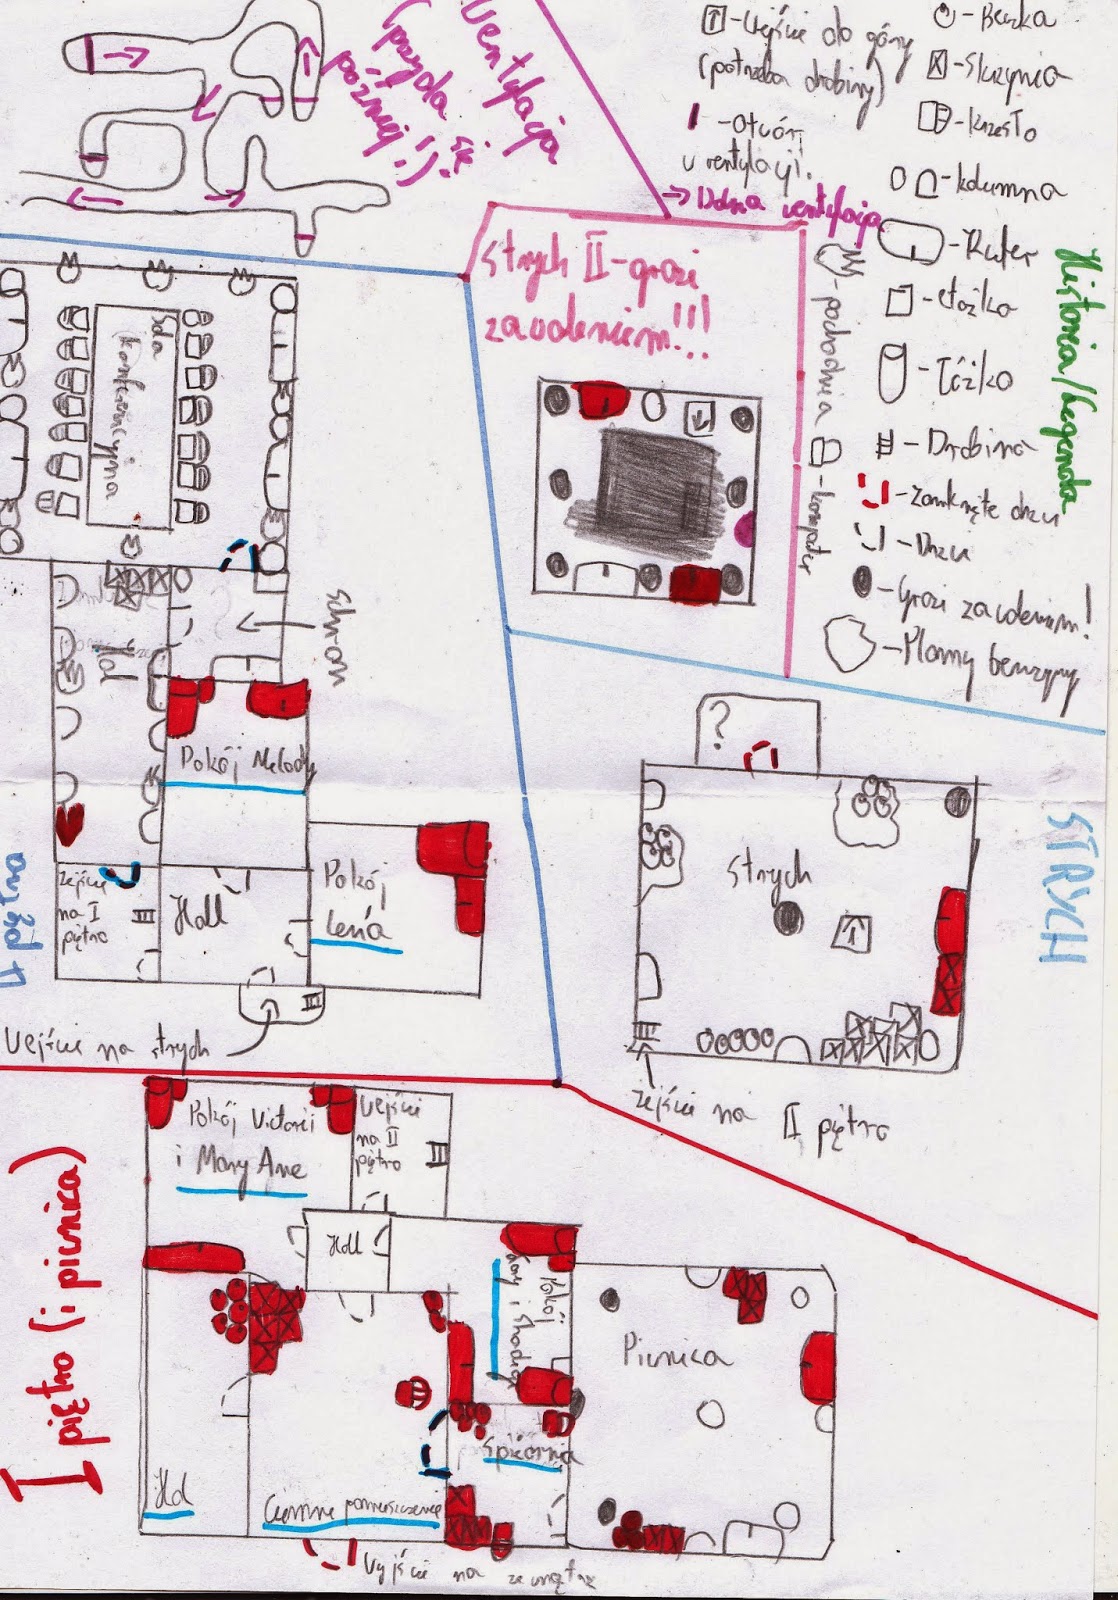 Wentylacja
(przyda się
później!)
- Wejście do góry
(potrzeba drobiny)
- Otwór
w wentylacji.
→ Dolna wentylacja
- Beczka
- Skrzynia
- Krzesło
- kolumna
- Kufer
- Łóżko
- Drobina
- Zamknięte drzwi
- Drzwi
- Grozi zawaleniem!
- Plamy benzyny
- pochodnia
- komputer
Historia/Legenda
Strych II - grozi
zawaleniem!!!
Sala
konferencyjna
Schron
Hol
Pokój Melody
Pokój
Lenía
zejście
na I
piętro
Holl
II piętro
Wejście na strych
?
Strych
STRYCH
zejście na II piętro
I piętro (i piwnica)
Pokój Victorii
i Mary Ane
Wejście
na II
piętro
Holl
Pokój
Piwnica
Spiżarnia
Hol
Ciemne pomieszczenie
Wyjście na zewnątrz